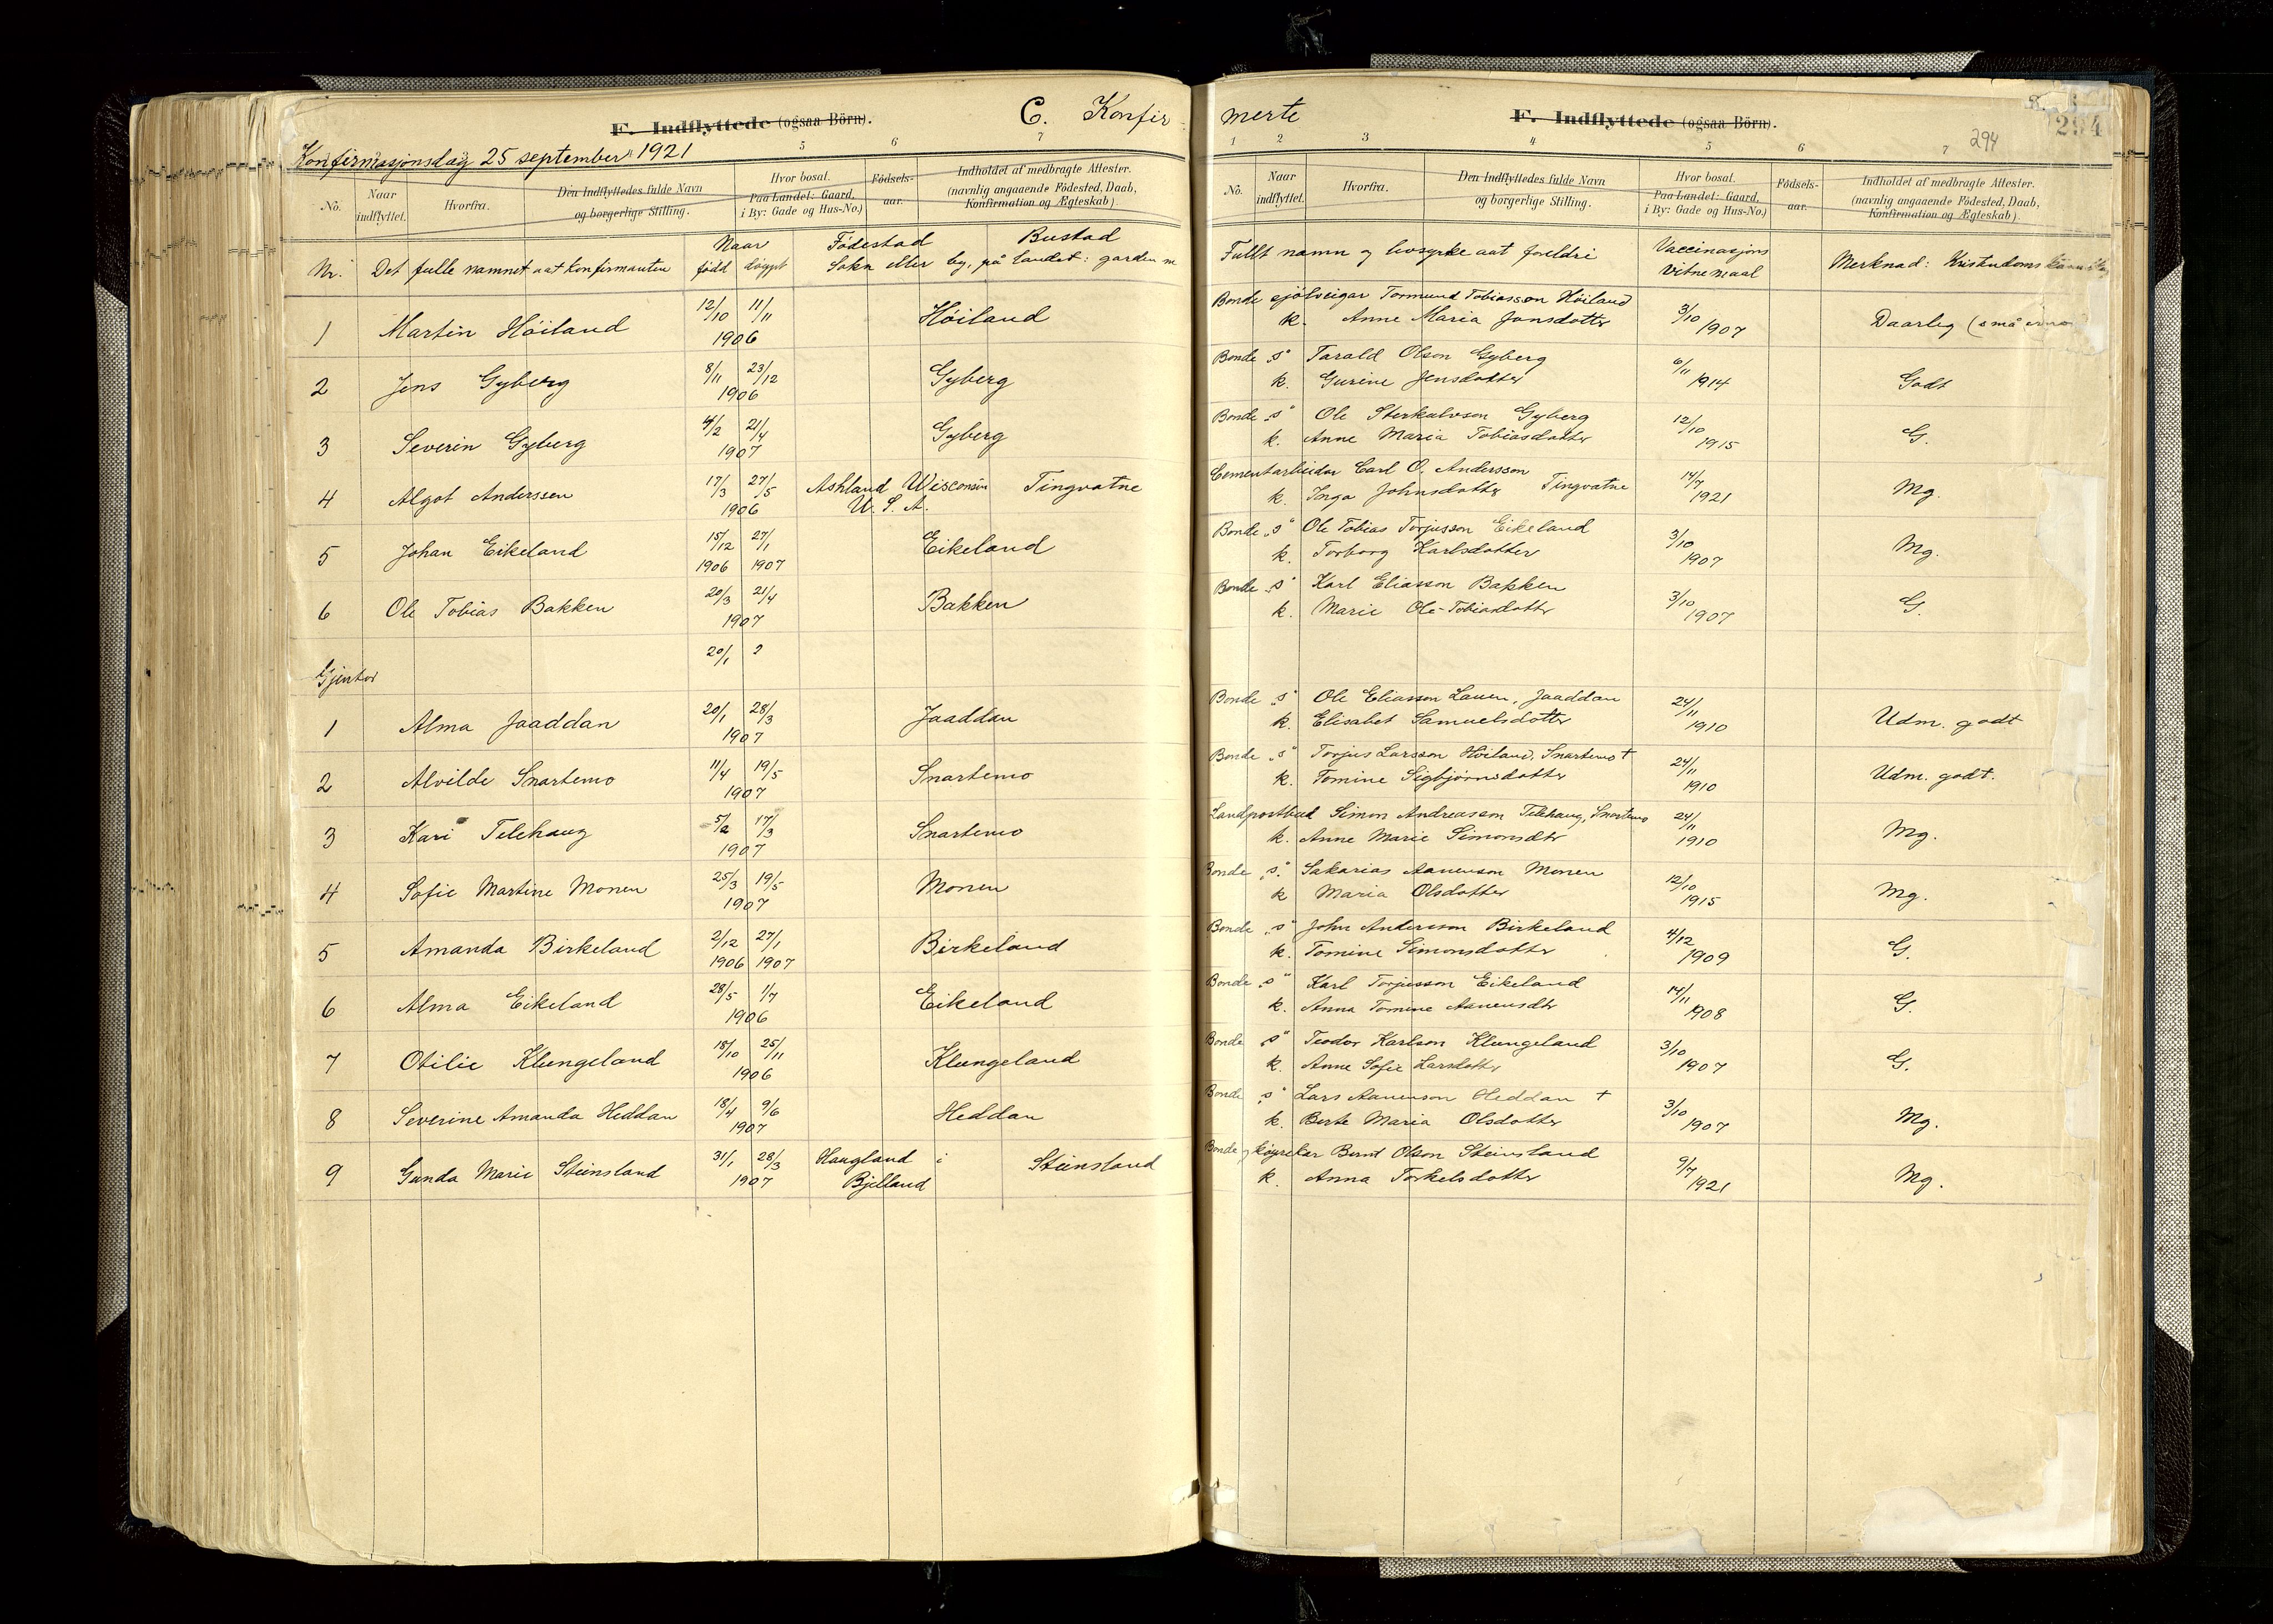 F. Indflyttede (ogsaa Börn).
C. Konfir-
Konfirmasjonsdag 25 september 1921
5 6 7
No.
Naar indflyttet.
Hvorfra.
Den Indflyttedes fulde Navn og borgerlige Stilling.
Hvor bosat. Paa Landet: Gaard, i By: Gade og Hus-No.)
Födsels-aar.
Indholdet af medbragte Attester. (navnlig angaaende Födested, Daab, Konfirmation og Ægteskab).
Nr. Det fulle namnet aat konfirmanten Naar född döypt Födestad Bustad Sokn eller by, på landet: garden
1 Martin Höiland 12/10 11/11 1906 Höiland
2 Jens Gyberg 8/11 23/12 1906 Gyberg
3 Severin Gyberg 4/2 21/4 1907 Gyberg
4 Algot Anderssen 17/3 27/5 1906 Ashland Wisconsin U. S. A. Tingvatne
5 Johan Eikeland 15/12 1906 27/1 1907 Eikeland
6 Ole Tobias Bakken 20/3 21/4 1907 Bakken
20/1 2
Gjentor
1 Alma Jaaddan 20/1 28/3 1907 Jaaddan
2 Alvilde Snartemo 11/4 19/5 1907 Snartemo
3 Kari Telehaug 5/2 17/3 1907 Snartemo
4 Sofie Martine Monen 25/3 19/5 1907 Monen
5 Amanda Birkeland 2/12 1906 27/1 1907 Birkeland
6 Alma Eikeland 28/5 1/7 1906 Eikeland
7 Otilie Klungeland 18/10 25/11 1906 Klungeland
8 Severine Amanda Heddan 18/4 9/6 1907 Heddan
9 Gunda Marie Steinsland 31/1 28/3 1907 Haugland i Bjelland Steinsland
merte
F. Indflyttede (ogsaa Börn).
294
294
1 2 3 4 5 6 7
No.
Naar indflyttet.
Hvorfra.
Den Indflyttedes fulde Navn og borgerlige Stilling.
Hvor bosat. Paa Landet: Gaard, i By: Gade og Hus-No.)
Födsels-aar.
Indholdet af medbragte Attester. (navnlig angaaende Födested, Daab, Konfirmation og Ægteskab).
Fullt namn og livsyrke aat foreldri Vaccinasjons vitnemaal Merknad: Kristendoms
Bonde sjölveigar Tormund Tobiasson Höiland
k. Anne Maria Jonsdotter 3/10 1907 Daarleg (små
Bonde „s" Tarald Olson Gyberg
k. Gurine Jensdotter 6/11 1914 Godt
Bonde „s" Ole Sterkulvson Gyberg
k. Anne Maria Tobiasdotter 12/10 1915 G.
Cementarbeidar Carl O. Andersson
k. Inga Johnsdotter Tingvatne 14/7 1921 Mg.
Bonde „s" Ole Tobias Torjusson Eikeland
k. Torborg Karlsdotter 3/10 1907 Mg.
Bonde „s" Karl Eliasson Bakken
k. Marie Ole-Tobiasdotter 3/10 1907 G.
Bonde „s" Ole Eliasson Lauen, Jaaddan
k. Elisabet Samuelsdotter 24/11 1910 Udm. godt
Bonde „s" Torjus Larsson Höiland, Snartemo †
k. Tomine Sigbjörnsdotter 24/11 1910 Udm. godt.
Landpostbud Simon Andreasson Telehaug, Snartemo
k. Anne Marie Simonsdtr 24/11 1910 Mg.
Bonde „s" Sakarias Aanenson Monen
k Maria Olsdotter 12/10 1915 Mg.
Bonde „s" John Andersson Birkeland
k. Tomine Simonsdotter 4/12 1909 G.
Bonde „s" Karl Torjusson Eikeland
k. Anna Tomine Aanensdtr 14/11 1908 G.
Bonde „s" Teodor Karlson Klungeland
k. Anne Sofie Larsdotter 3/10 1907 G.
Bonde „s" Lars Aanenson Heddan †
k. Berte Maria Olsdotter 3/10 1907 Mg.
Bonde og köyrekar Bernt Olson Steinsland
k. Anna Torkelsdotter 9/7 1921 Mg.